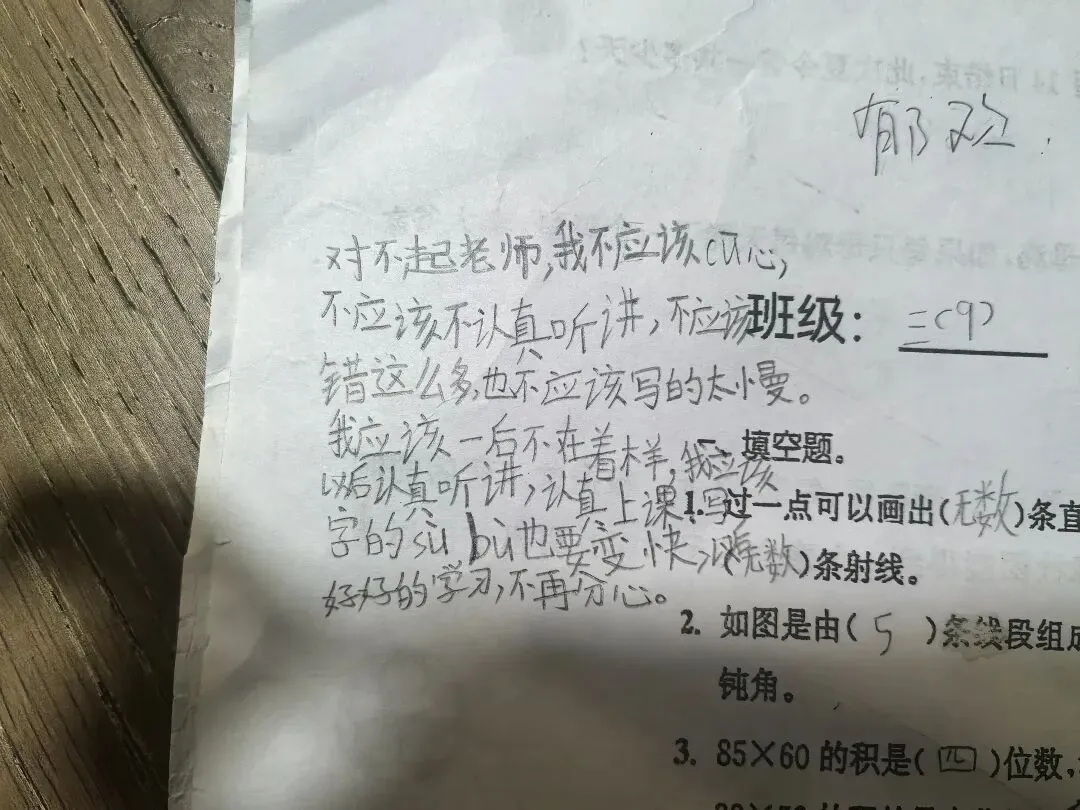 郁欢
对不起老师,我不应该cū心,
不应该不认真听讲,不应该
错这么多,也不应该写的太慢。
我应该一后不在着样,我应该
以后认真听讲,认真上课,写
字的sù bù也要变快,以后
好好的学习,不再分心。
班级: 三(9)
一、填空题。
1. 过一点可以画出(无数)条直
(无数)条射线。
2. 如图是由( 5 )条线段组成
钝角。
3. 85×60 的积是(四)位数,